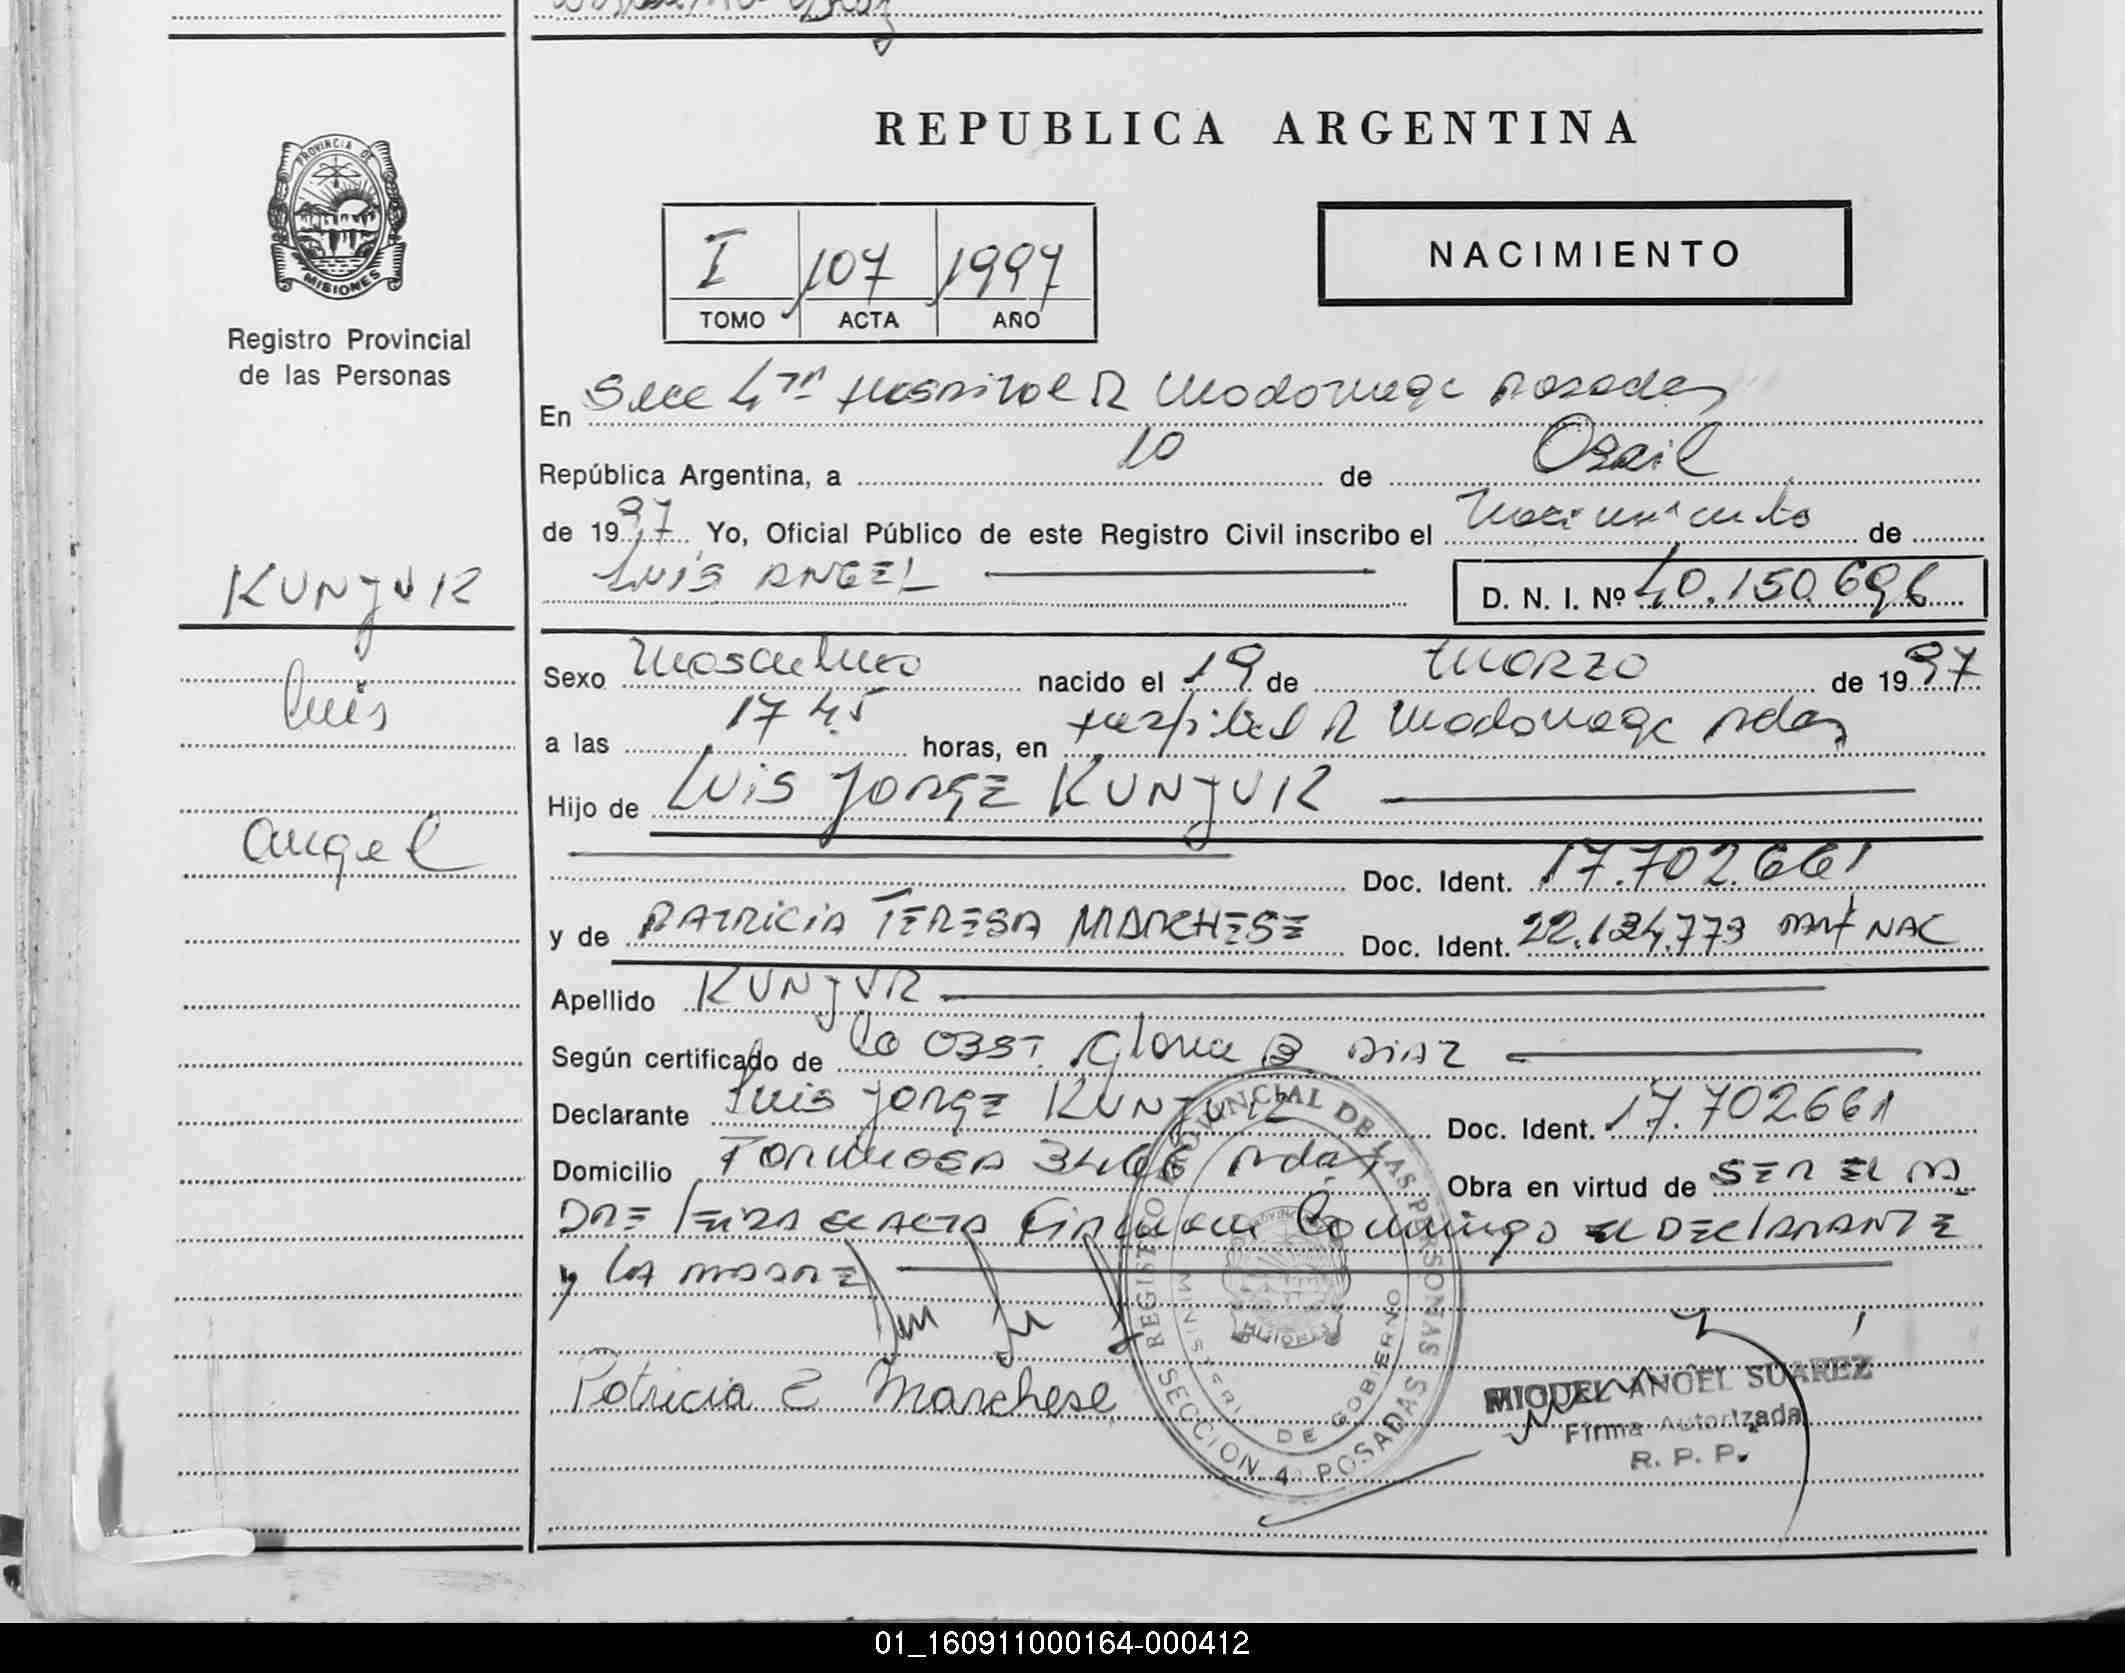 REPUBLICA ARGENTINA
PROVINCIA DE
MISIONES
Registro Provincial
de las Personas
I 107 1997
TOMO ACTA AÑO
NACIMIENTO
En Secc 4ta Hospital R Madariaga Posadas
República Argentina, a 10 de Abril
de 1997 Yo, Oficial Público de este Registro Civil inscribo el Nacimiento de
LUIS ANGEL D. N. I. Nº 40.150.696
KUNJUR
Luis
Angel
Sexo Masculino nacido el 19 de MARZO de 1997
a las 17 45 horas, en Hospital R Madariaga Pdas
Hijo de LUIS JORGE KUNJUR
Doc. Ident. 17.702.661
y de PATRICIA TERESA MARCHESE Doc. Ident. 22.124.773 NAC
Apellido KUNJUR
Según certificado de la OBST. Gloria B. DIAZ
Declarante Luis JORGE KUNJUR Doc. Ident. 17.702661
Domicilio FORMOSA 3466 Pdas Obra en virtud de SER EL PA
DRE leida el ACTA FIRMAN Conmigo EL DECLARANTE
y LA MADRE
Patricia Marchese
REGISTRO PROVINCIAL DE LAS PERSONAS
SECCION 4 POSADAS
MINISTERIO DE GOBIERNO
PROVINCIA
MISIONES
MIGUEL ANGEL SUAREZ
Firma Autorizada
R. P. P.
01_160911000164-000412